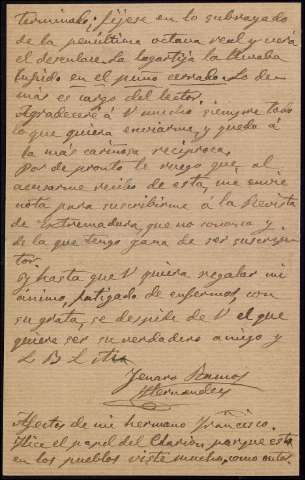 terminado; fíjese en lo subrayado
de la penúltima octava real y verá
el desenlace. La lagartija la llevaba
en el puño cerrado. Lo de-
más es cargo del lector.
Agradeceré á V mucho siempre todo
lo que quiera enviarme, y queda á
la más cariñosa recíproca.
Por de pronto le ruego que al
acusarme recibo de esta, me envíe
nota para suscribirme á la Revista
de Extremadura, que no conozco y
de la que tengo gana de ser suscrip-
tor.
Y hasta que V quiera regalar mi
ánimo, fatigado de enfermos, con
su grata, se despide de V el que
quiere ser su verdadero amigo y
L B L M
Jenaro Ramos
Hernández
Afectos de mi hermano Francisco.
Hice el papel del Clarión porque esto
en los pueblos viste mucho, como autor.